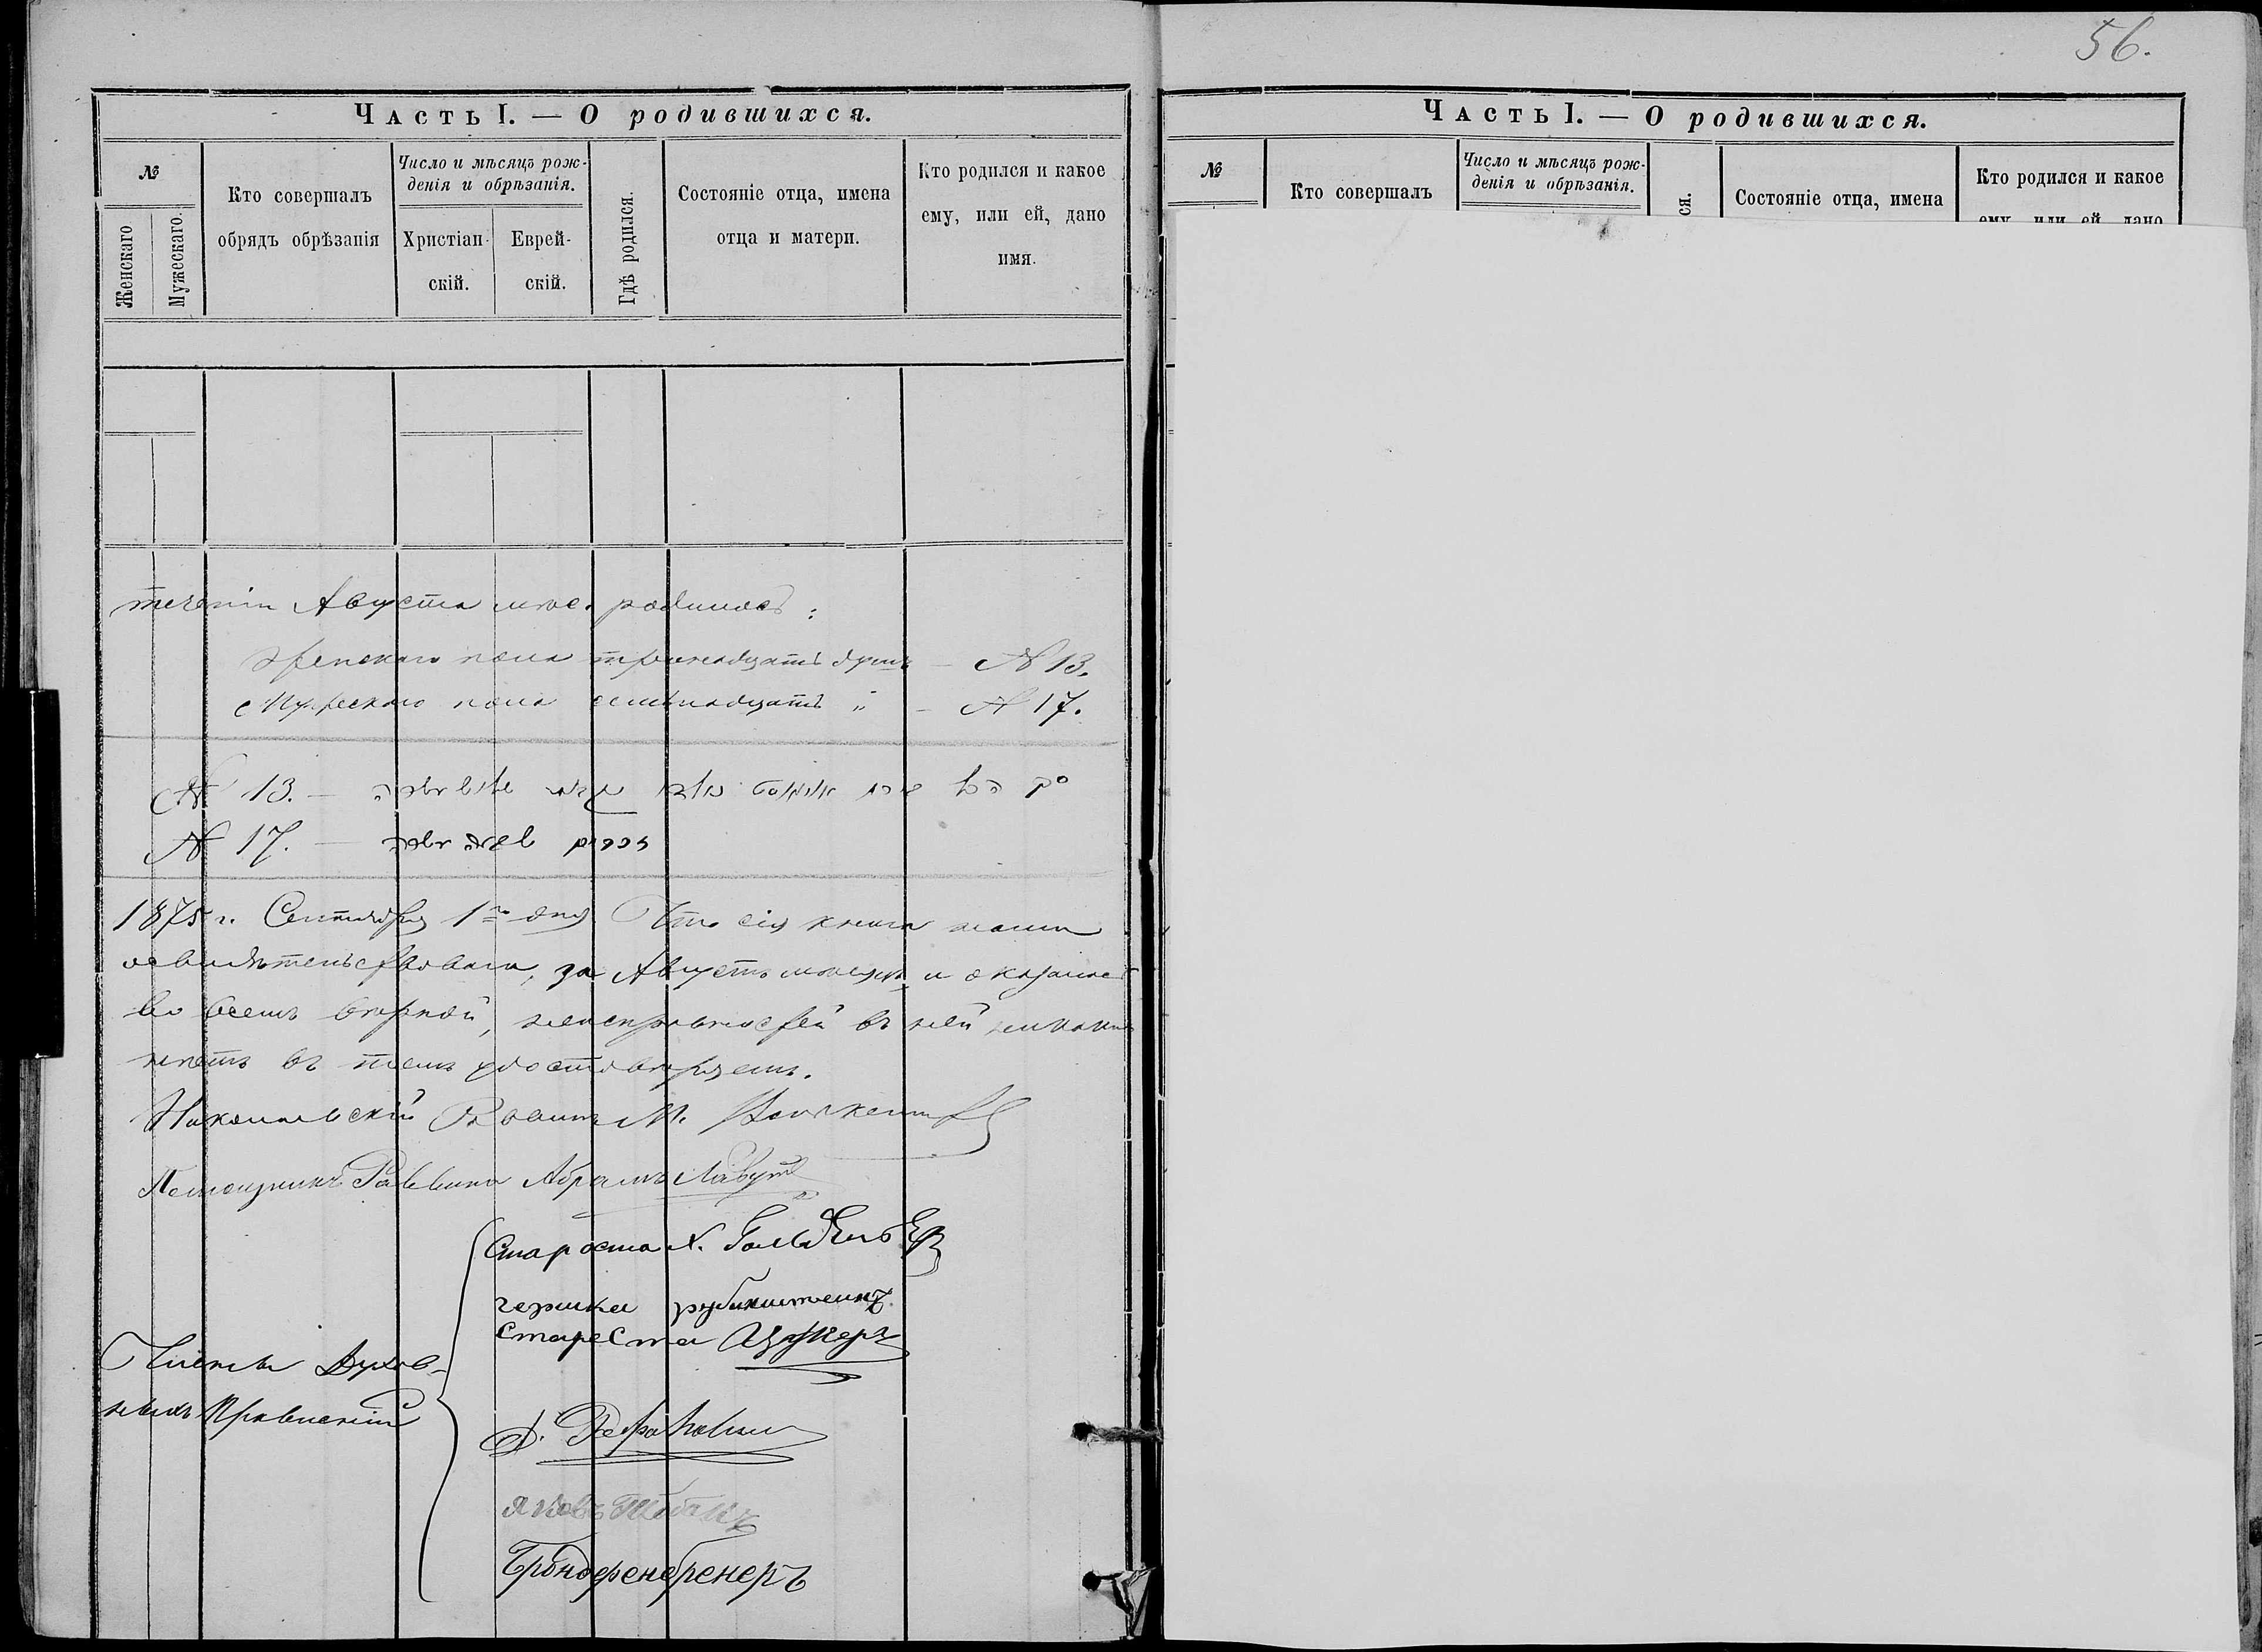 56.
Часть I. — О родившихся.
№
Женскаго
Мужескаго.
Кто совершалъ
обрядъ обрѣзанія
Число и мѣсяцъ рож-
денія и обрѣзанія.
Христіан-
скій.
Еврей-
скій.
Гдѣ родился.
Состояніе отца, имена
отца и матери.
Кто родился и какое
ему, или ей, дано
имя.
теченіи Августа мѣс. родилось:
Женскаго пола тринадцать душъ — № 13.
Мужескаго пола семьнадцать " — № 17.
№ 13. —
№ 17. —
1875 г. Сентября 1го дня. Что сія книга нами
освидѣтельствована, за Августъ мѣсяцъ и оказалась
во всемъ вѣрной, неисправностей въ ней никакихъ
нетъ въ томъ удостовѣряемъ.
Раввинъ М.
Помощникъ Раввина Абрамъ Лавутъ
Староста Х. Гольденберг
рубинштейнъ
Староста Цукеръ
Члены Духов-
ныхъ Правленій
Яковъ
Часть I. — О родившихся.
№
Кто совершалъ
Число и мѣсяцъ рож-
денія и обрѣзанія.
ся.
Состояніе отца, имена
Кто родился и какое
ему, или ей, дано